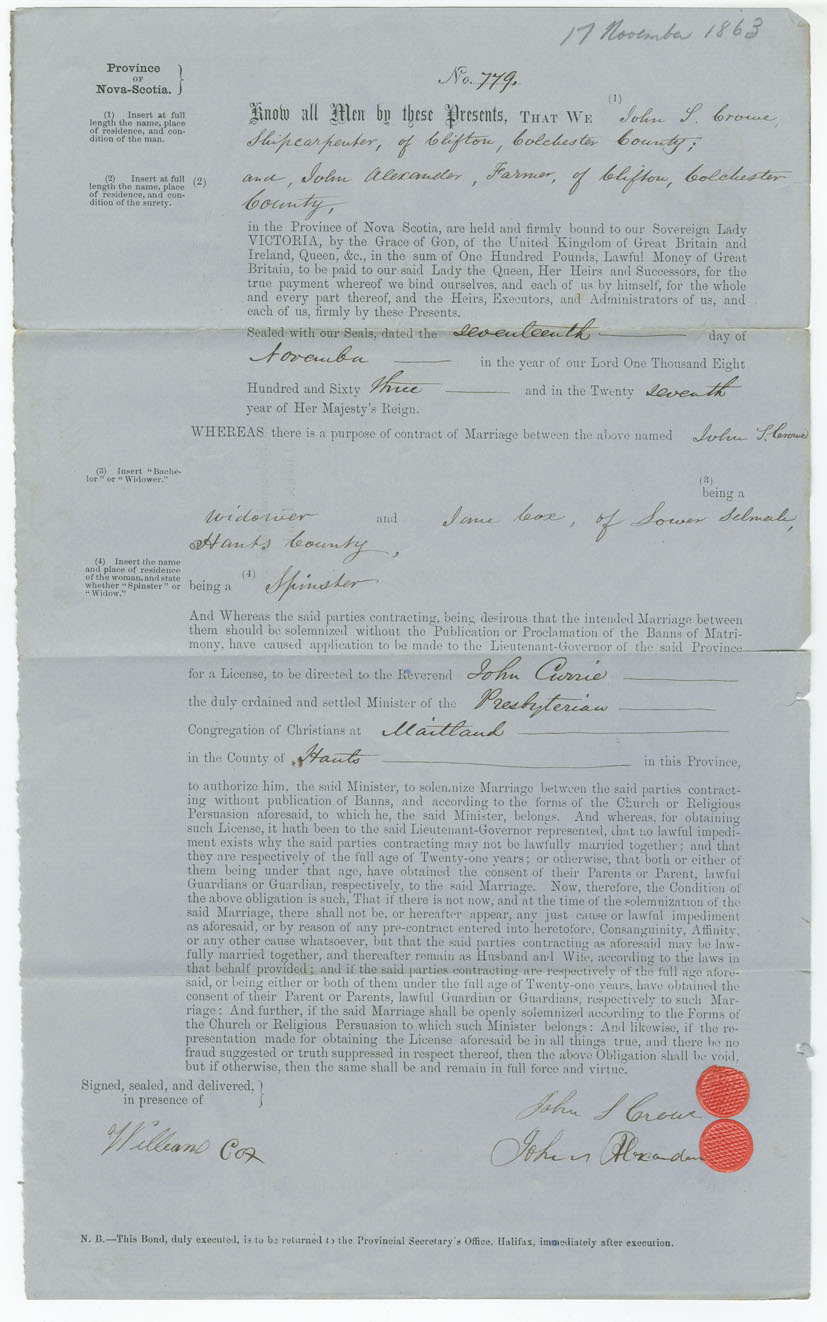 17 November 1863
Province
OF
Nova-Scotia.
No. 779.
(1) Insert at full
length the name, place
of residence, and con-
dition of the man.
(1)
Know all Men by these Presents, THAT WE John S. Crowe,
Shipcarpenter, of Clifton, Colchester County;
(2) Insert at full
length the name, place
of residence, and con-
dition of the surety.
(2)
and, John Alexander, Farmer, of Clifton, Colchester
County,
in the Province of Nova Scotia, are held and firmly bound to our Sovereign Lady
VICTORIA, by the Grace of GOD, of the United Kingdom of Great Britain and
Ireland, Queen, &c., in the sum of One Hundred Pounds, Lawful Money of Great
Britain, to be paid to our said Lady the Queen, Her Heirs and Successors, for the
true payment whereof we bind ourselves, and each of us by himself, for the whole
and every part thereof, and the Heirs, Executors, and Administrators of us, and
each of us, firmly by these Presents.
Sealed with our Seals, dated the seventeenth day of
November in the year of our Lord One Thousand Eight
Hundred and Sixty three and in the Twenty seventh
year of Her Majesty's Reign.
WHEREAS there is a purpose of contract of Marriage between the above named John S. Crowe
(3) Insert "Bache-
lor" or "Widower."
(3)
being a
widower and Jane Cox, of Lower Selmah,
Hants County,
(4) Insert the name
and place of residence
of the woman, and state
whether "Spinster" or
"Widow."
being a (4) Spinster
And Whereas the said parties contracting, being desirous that the intended Marriage between
them should be solemnized without the Publication or Proclamation of the Banns of Matri-
mony, have caused application to be made to the Lieutenant-Governor of the said Province
for a License, to be directed to the Reverend John Currie
the duly ordained and settled Minister of the Presbyterian
Congregation of Christians at Maitland
in the County of Hants in this Province,
to authorize him, the said Minister, to solemnize Marriage between the said parties contract-
ing without publication of Banns, and according to the forms of the Church or Religious
Persuasion aforesaid, to which he, the said Minister, belongs. And whereas, for obtaining
such License, it hath been to the said Lieutenant-Governor represented, that no lawful impedi-
ment exists why the said parties contracting may not be lawfully married together; and that
they are respectively of the full age of Twenty-one years; or otherwise, that both or either of
them being under that age, have obtained the consent of their Parents or Parent, lawful
Guardians or Guardian, respectively, to the said Marriage. Now, therefore, the Condition of
the above obligation is such, That if there is not now, and at the time of the solemnization of the
said Marriage, there shall not be, or hereafter appear, any just cause or lawful impediment
as aforesaid, or by reason of any pre-contract entered into heretofore, Consanguinity, Affinity,
or any other cause whatsoever, but that the said parties contracting as aforesaid may be law-
fully married together, and thereafter remain as Husband and Wife, according to the laws in
that behalf provided; and if the said parties contracting are respectively of the full age afore-
said, or being either or both of them under the full age of Twenty-one years, have obtained the
consent of their Parent or Parents, lawful Guardian or Guardians, respectively to such Mar-
riage: And further, if the said Marriage shall be openly solemnized according to the Forms of
the Church or Religious Persuasion to which such Minister belongs: And likewise, if the re-
presentation made for obtaining the License aforesaid be in all things true, and there be no
fraud suggested or truth suppressed in respect thereof, then the above Obligation shall be void,
but if otherwise, then the same shall be and remain in full force and virtue.
Signed, sealed, and delivered,
in presence of
John S Crowe
William Cox
John Alexander
N. B.—This Bond, duly executed, is to be returned to the Provincial Secretary's Office, Halifax, immediately after execution.